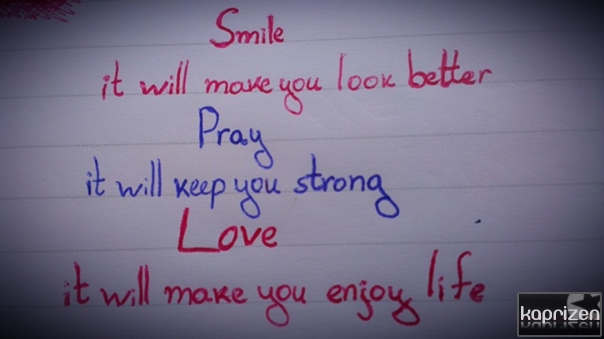 Smile
it will make you look better
Pray
it will keep you strong
Love
it will make you enjoy life
kaprizen